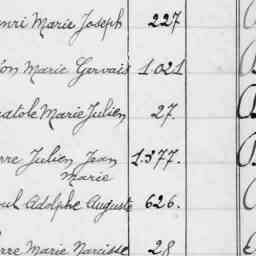 enri Marie Joseph 227
on Marie Gervais 1.021
natole Marie Julien 27.
rre Julien Jean 1.377.
Marie
oul Adolphe Auguste 626.
rre Marie Narcisse 28